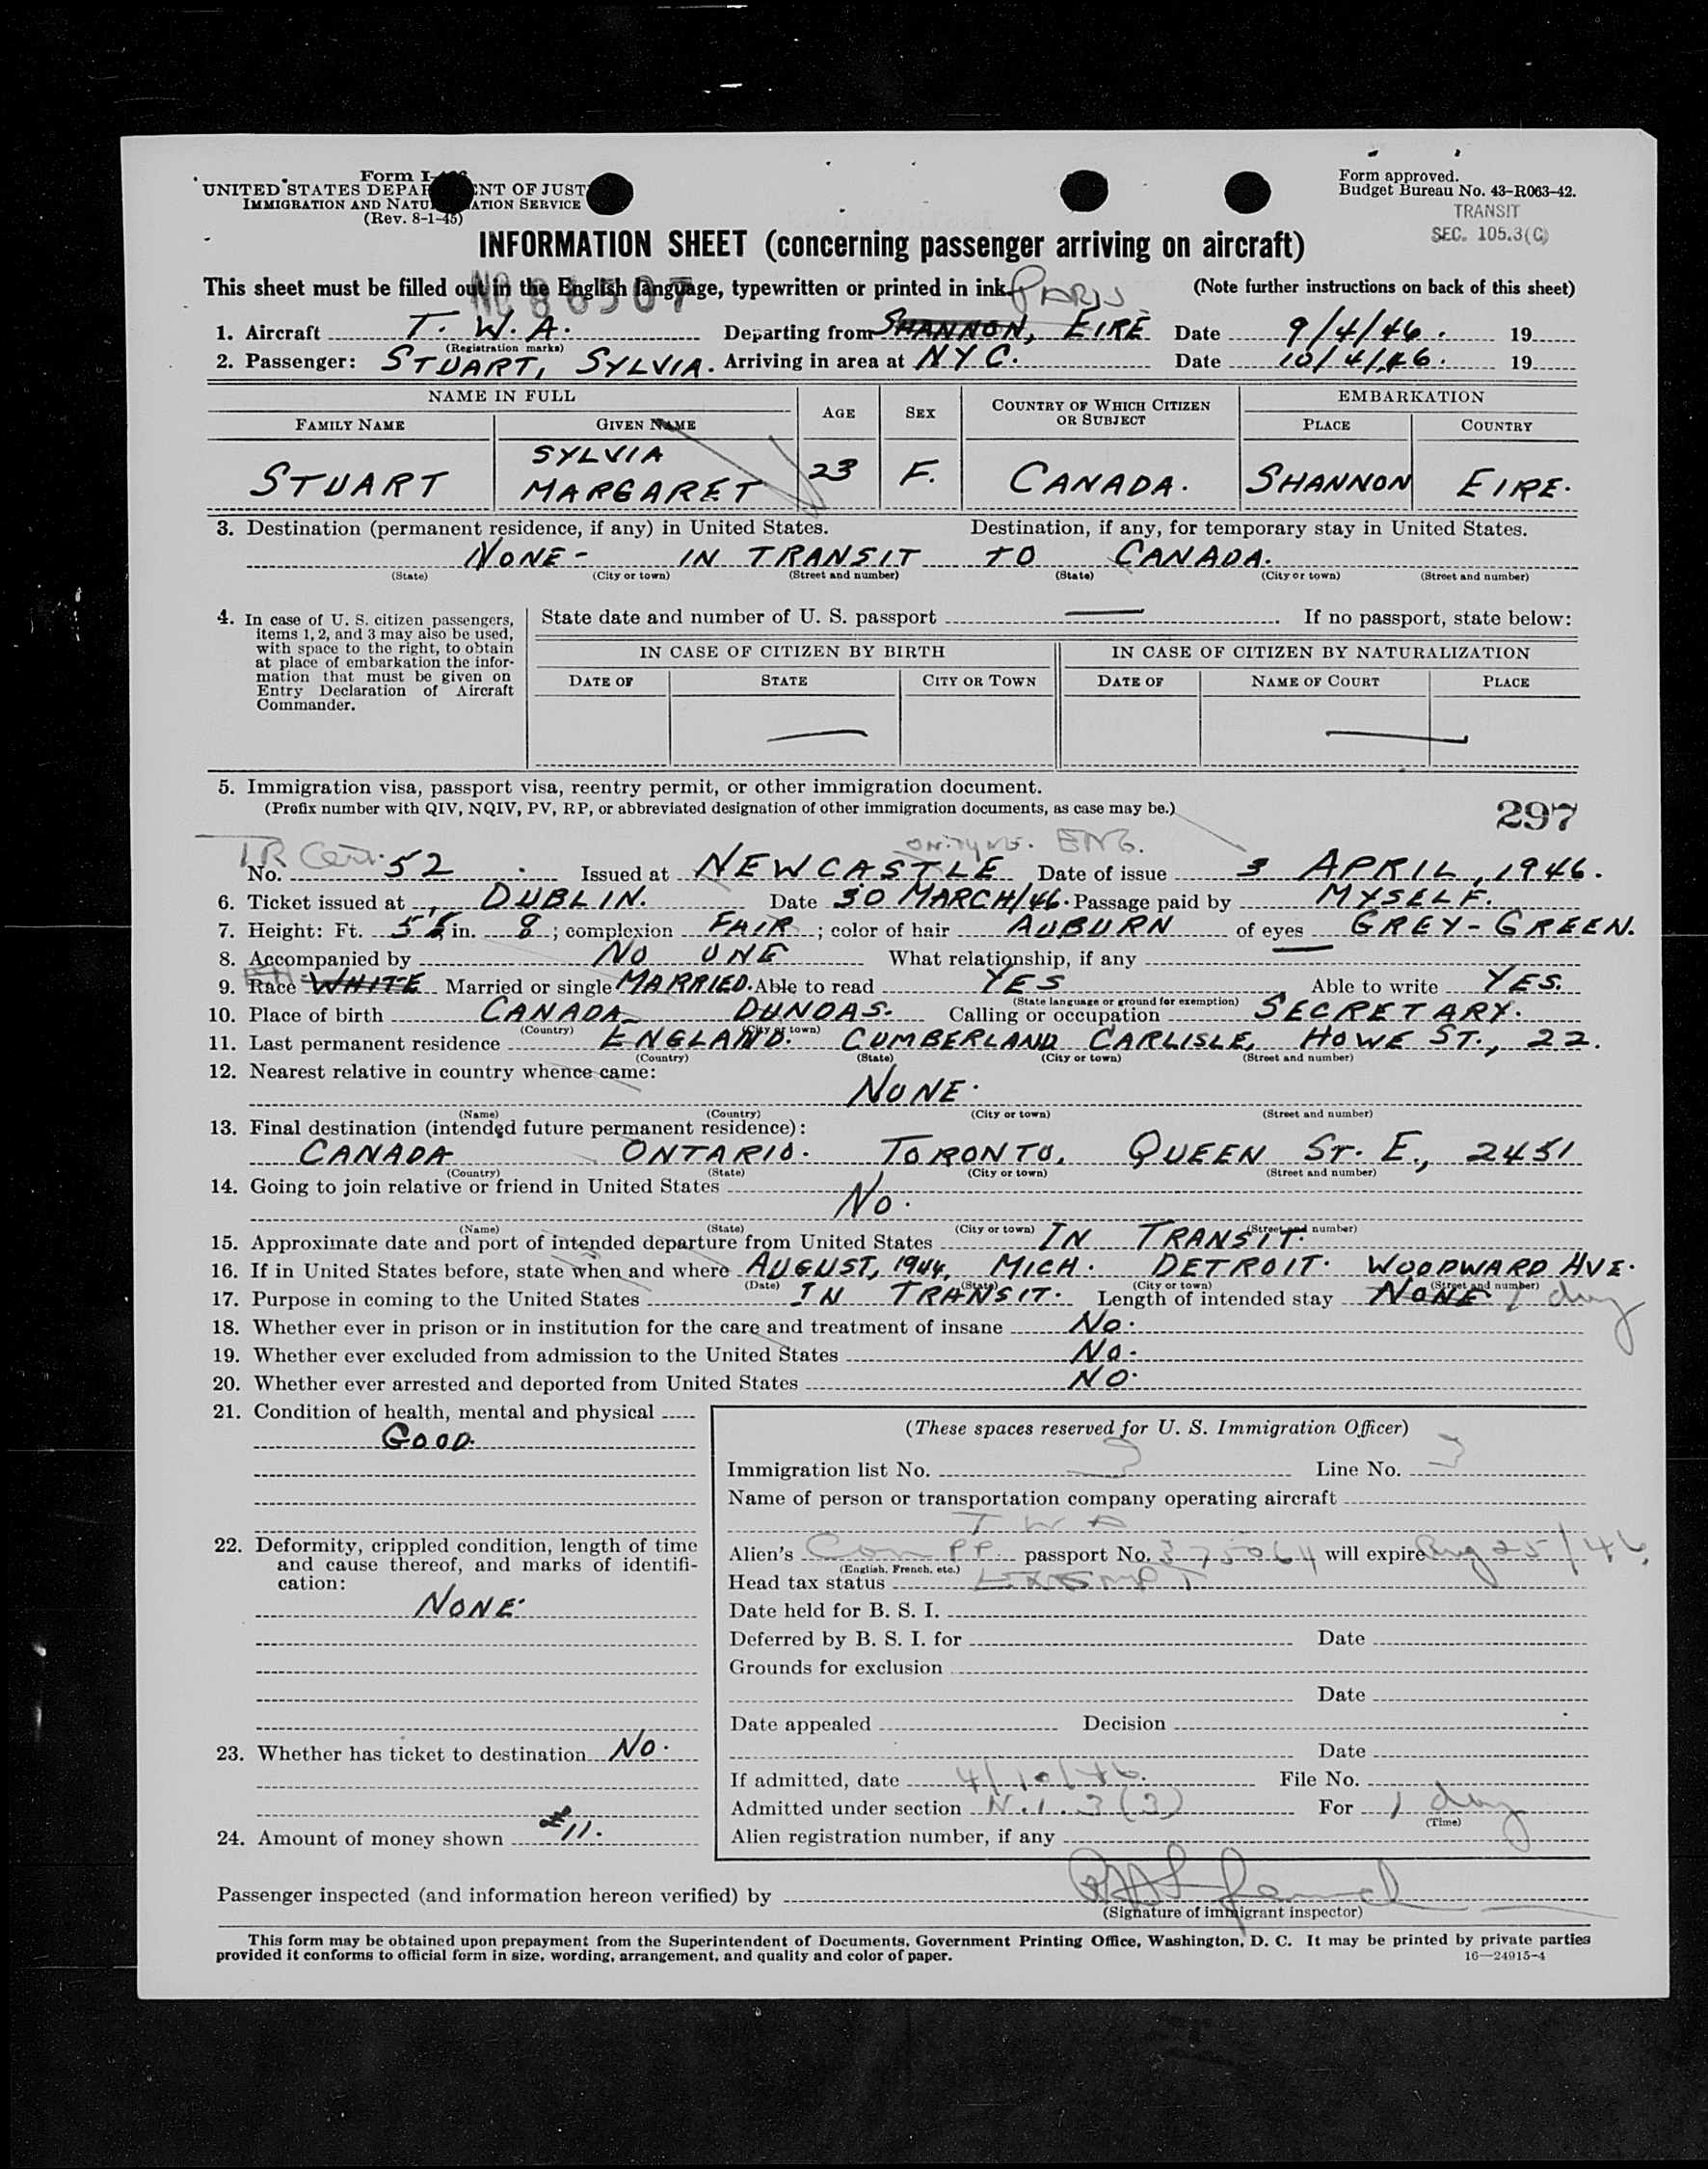 Form I-
UNITED STATES DEPARTMENT OF JUST
IMMIGRATION AND NATU ATION SERVICE
(Rev. 8-1-45)
Form approved.
Budget Bureau No. 43-R063-42.
TRANSIT
SEC. 105.3(C)
INFORMATION SHEET (concerning passenger arriving on aircraft)
This sheet must be filled out in the English language, typewritten or printed in ink. (Note further instructions on back of this sheet)
No 86507
PARIS
1. Aircraft T. W. A. Departing from SHANNON, EIRE Date 9/4/46. 19
(Registration marks)
2. Passenger: STUART, SYLVIA. Arriving in area at NYC. Date 10/4/46. 19
NAME IN FULL AGE SEX COUNTRY OF WHICH CITIZEN OR SUBJECT EMBARKATION
FAMILY NAME GIVEN NAME PLACE COUNTRY
STUART SYLVIA MARGARET 23 F. CANADA. SHANNON EIRE.
3. Destination (permanent residence, if any) in United States. Destination, if any, for temporary stay in United States.
NONE - IN TRANSIT TO CANADA.
(State) (City or town) (Street and number) (State) (City or town) (Street and number)
4. In case of U. S. citizen passengers, items 1, 2, and 3 may also be used, with space to the right, to obtain at place of embarkation the information that must be given on Entry Declaration of Aircraft Commander.
State date and number of U. S. passport — If no passport, state below:
IN CASE OF CITIZEN BY BIRTH IN CASE OF CITIZEN BY NATURALIZATION
DATE OF STATE CITY OR TOWN DATE OF NAME OF COURT PLACE
5. Immigration visa, passport visa, reentry permit, or other immigration document.
(Prefix number with QIV, NQIV, PV, RP, or abbreviated designation of other immigration documents, as case may be.)
297
TR Cert. ON. TYNE. ENG.
No. 52 Issued at NEWCASTLE Date of issue 3 APRIL, 1946.
6. Ticket issued at DUBLIN. Date 30 MARCH/46. Passage paid by MYSELF.
7. Height: Ft. 5 in. 8; complexion FAIR; color of hair AUBURN of eyes GREY-GREEN.
8. Accompanied by NO ONE What relationship, if any —
9. Race WHITE Married or single MARRIED. Able to read YES Able to write YES.
(State language or ground for exemption)
10. Place of birth CANADA DUNDAS. Calling or occupation SECRETARY.
(Country) (City or town)
11. Last permanent residence ENGLAND. CUMBERLAND CARLISLE, HOWE ST., 22.
(Country) (State) (City or town) (Street and number)
12. Nearest relative in country whence came:
NONE.
(Name) (Country) (City or town) (Street and number)
13. Final destination (intended future permanent residence):
CANADA ONTARIO. TORONTO, QUEEN ST. E., 2451
(Country) (State) (City or town) (Street and number)
14. Going to join relative or friend in United States
NO.
(Name) (State) (City or town) (Street and number)
15. Approximate date and port of intended departure from United States IN TRANSIT.
16. If in United States before, state when and where AUGUST, 1944, MICH. DETROIT. WOODWARD AVE.
(Date) (State) (City or town) (Street and number)
17. Purpose in coming to the United States IN TRANSIT. Length of intended stay NONE 1 day
18. Whether ever in prison or in institution for the care and treatment of insane NO.
19. Whether ever excluded from admission to the United States NO.
20. Whether ever arrested and deported from United States NO.
21. Condition of health, mental and physical
GOOD.
22. Deformity, crippled condition, length of time and cause thereof, and marks of identification:
NONE.
23. Whether has ticket to destination NO.
24. Amount of money shown £11.
(These spaces reserved for U. S. Immigration Officer)
Immigration list No. 3 Line No. 3
Name of person or transportation company operating aircraft
T W A
Alien's Can PP. passport No. 375064 will expire Aug 25/46.
(English, French, etc.)
Head tax status EXEMPT
Date held for B. S. I.
Deferred by B. S. I. for Date
Grounds for exclusion
Date
Date appealed Decision
Date
If admitted, date 4/10/46. File No.
Admitted under section N.I. 3(3) For 1 day
(Time)
Alien registration number, if any
Passenger inspected (and information hereon verified) by
(Signature of immigrant inspector)
This form may be obtained upon prepayment from the Superintendent of Documents, Government Printing Office, Washington, D. C. It may be printed by private parties
provided it conforms to official form in size, wording, arrangement, and quality and color of paper. 16—24915-4